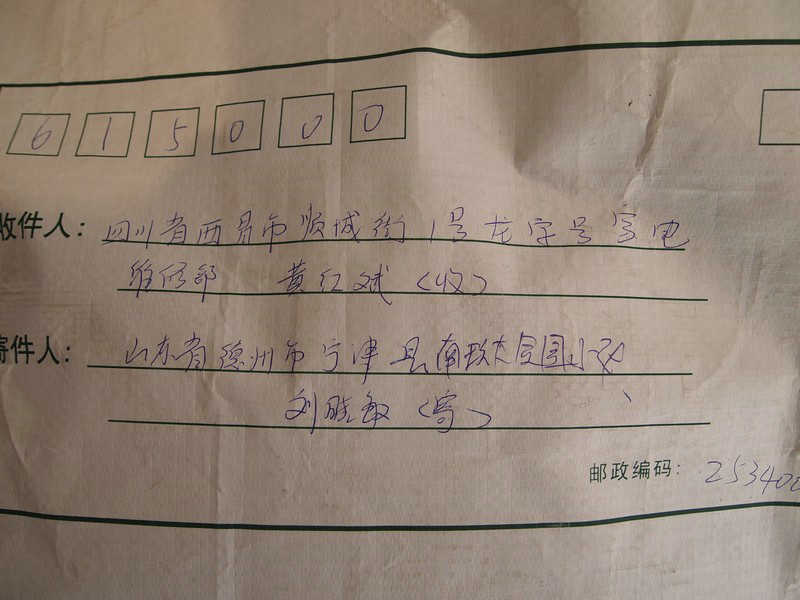 615000
收件人：四川省西昌市顺城街1号龙字号家电
维修部 黄红斌（收）
寄件人：山东省德州市宁津县南环大
刘胜敏（寄）
邮政编码：253400